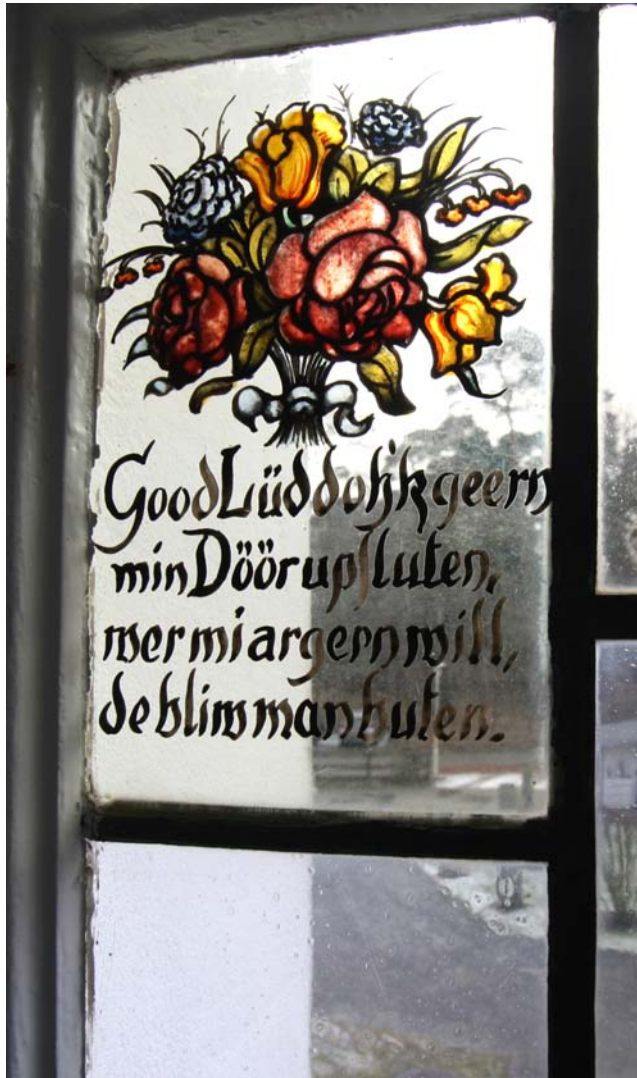 Good Lüd doh'k geern
min Döör upsluten,
wer mi argern will,
de bliw man buten.